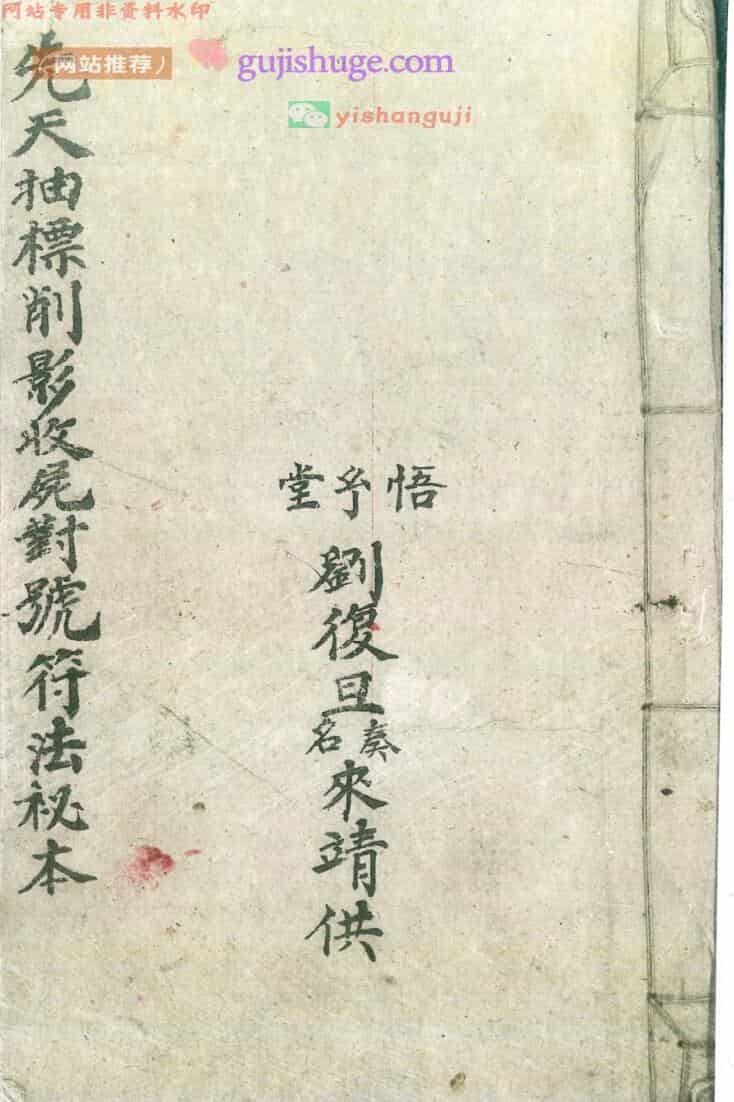 网站专用非资料水印
(网站推荐)
gujishuge.com
yishanguji
悟玄堂
劉復旦奏名來靖供
先天抽標削影收屍對號符法秘本